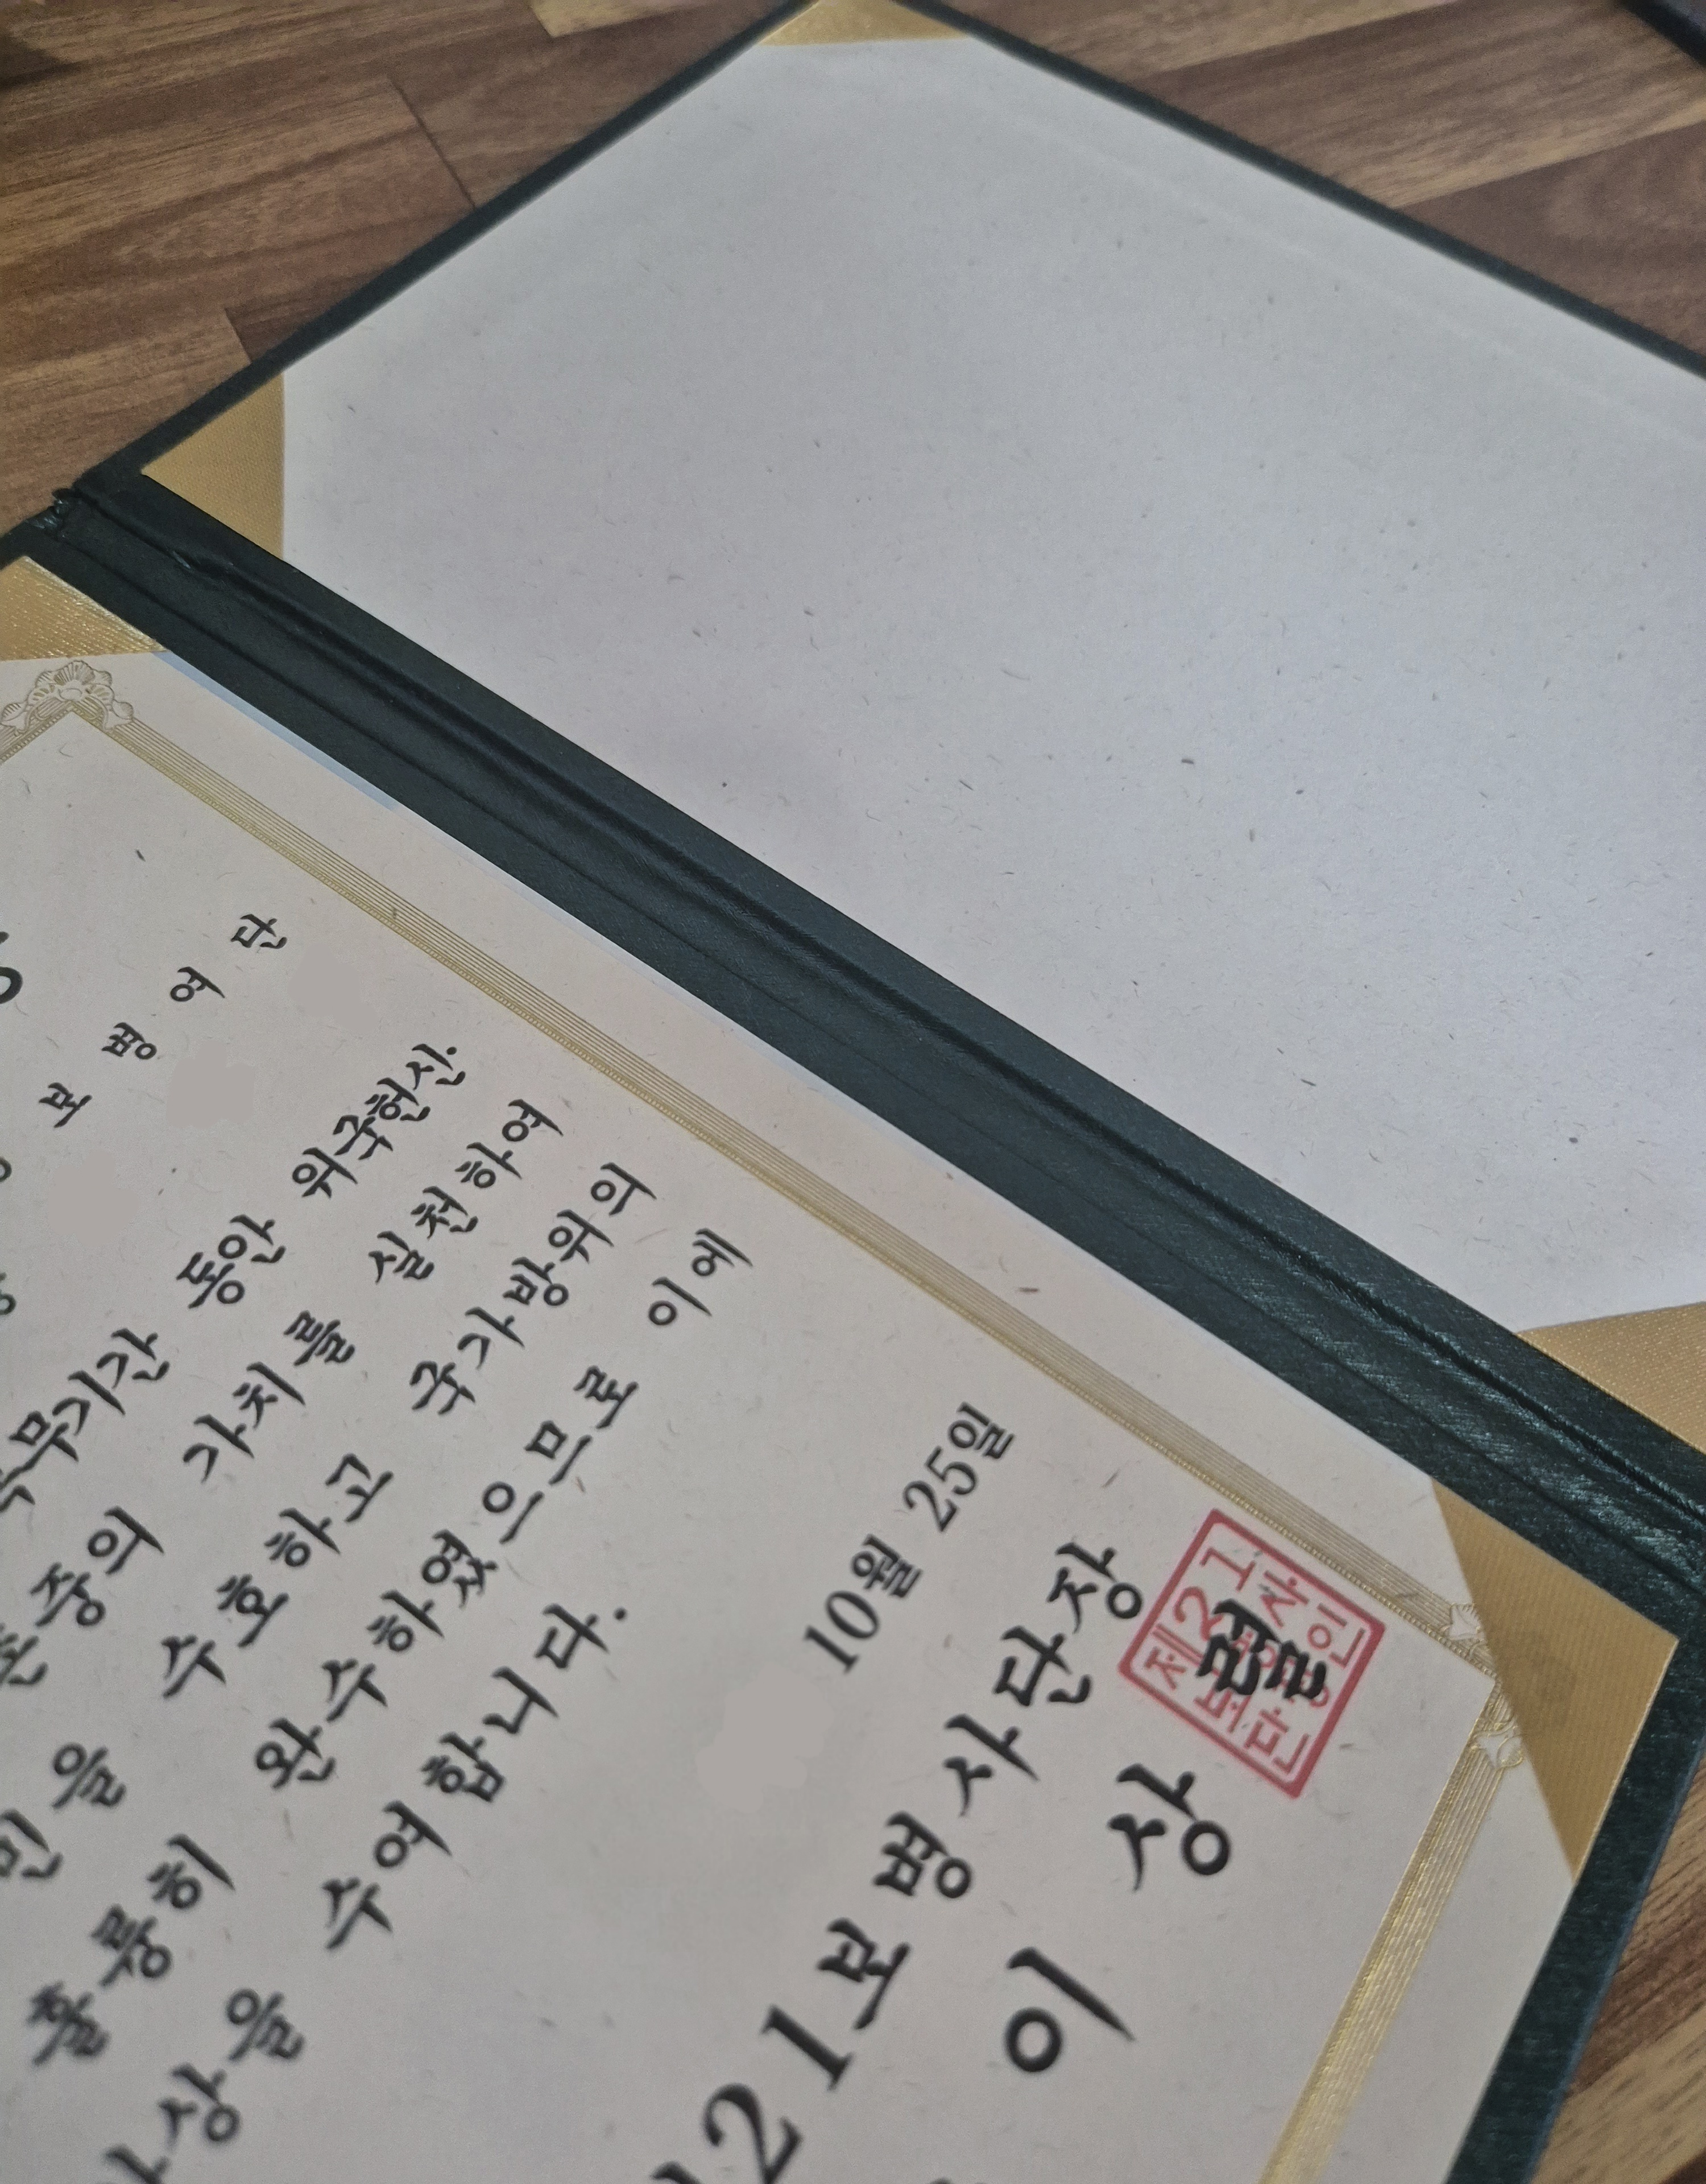 보병여단
무기간 동안 위국헌신·
존중의 가치를 실천하여
을 수호하고 국가방위의
훌륭히 완수하였으므로 이에
상을 수여합니다.
10월 25일
21보병사단장
이상렬
제21보병사단장인